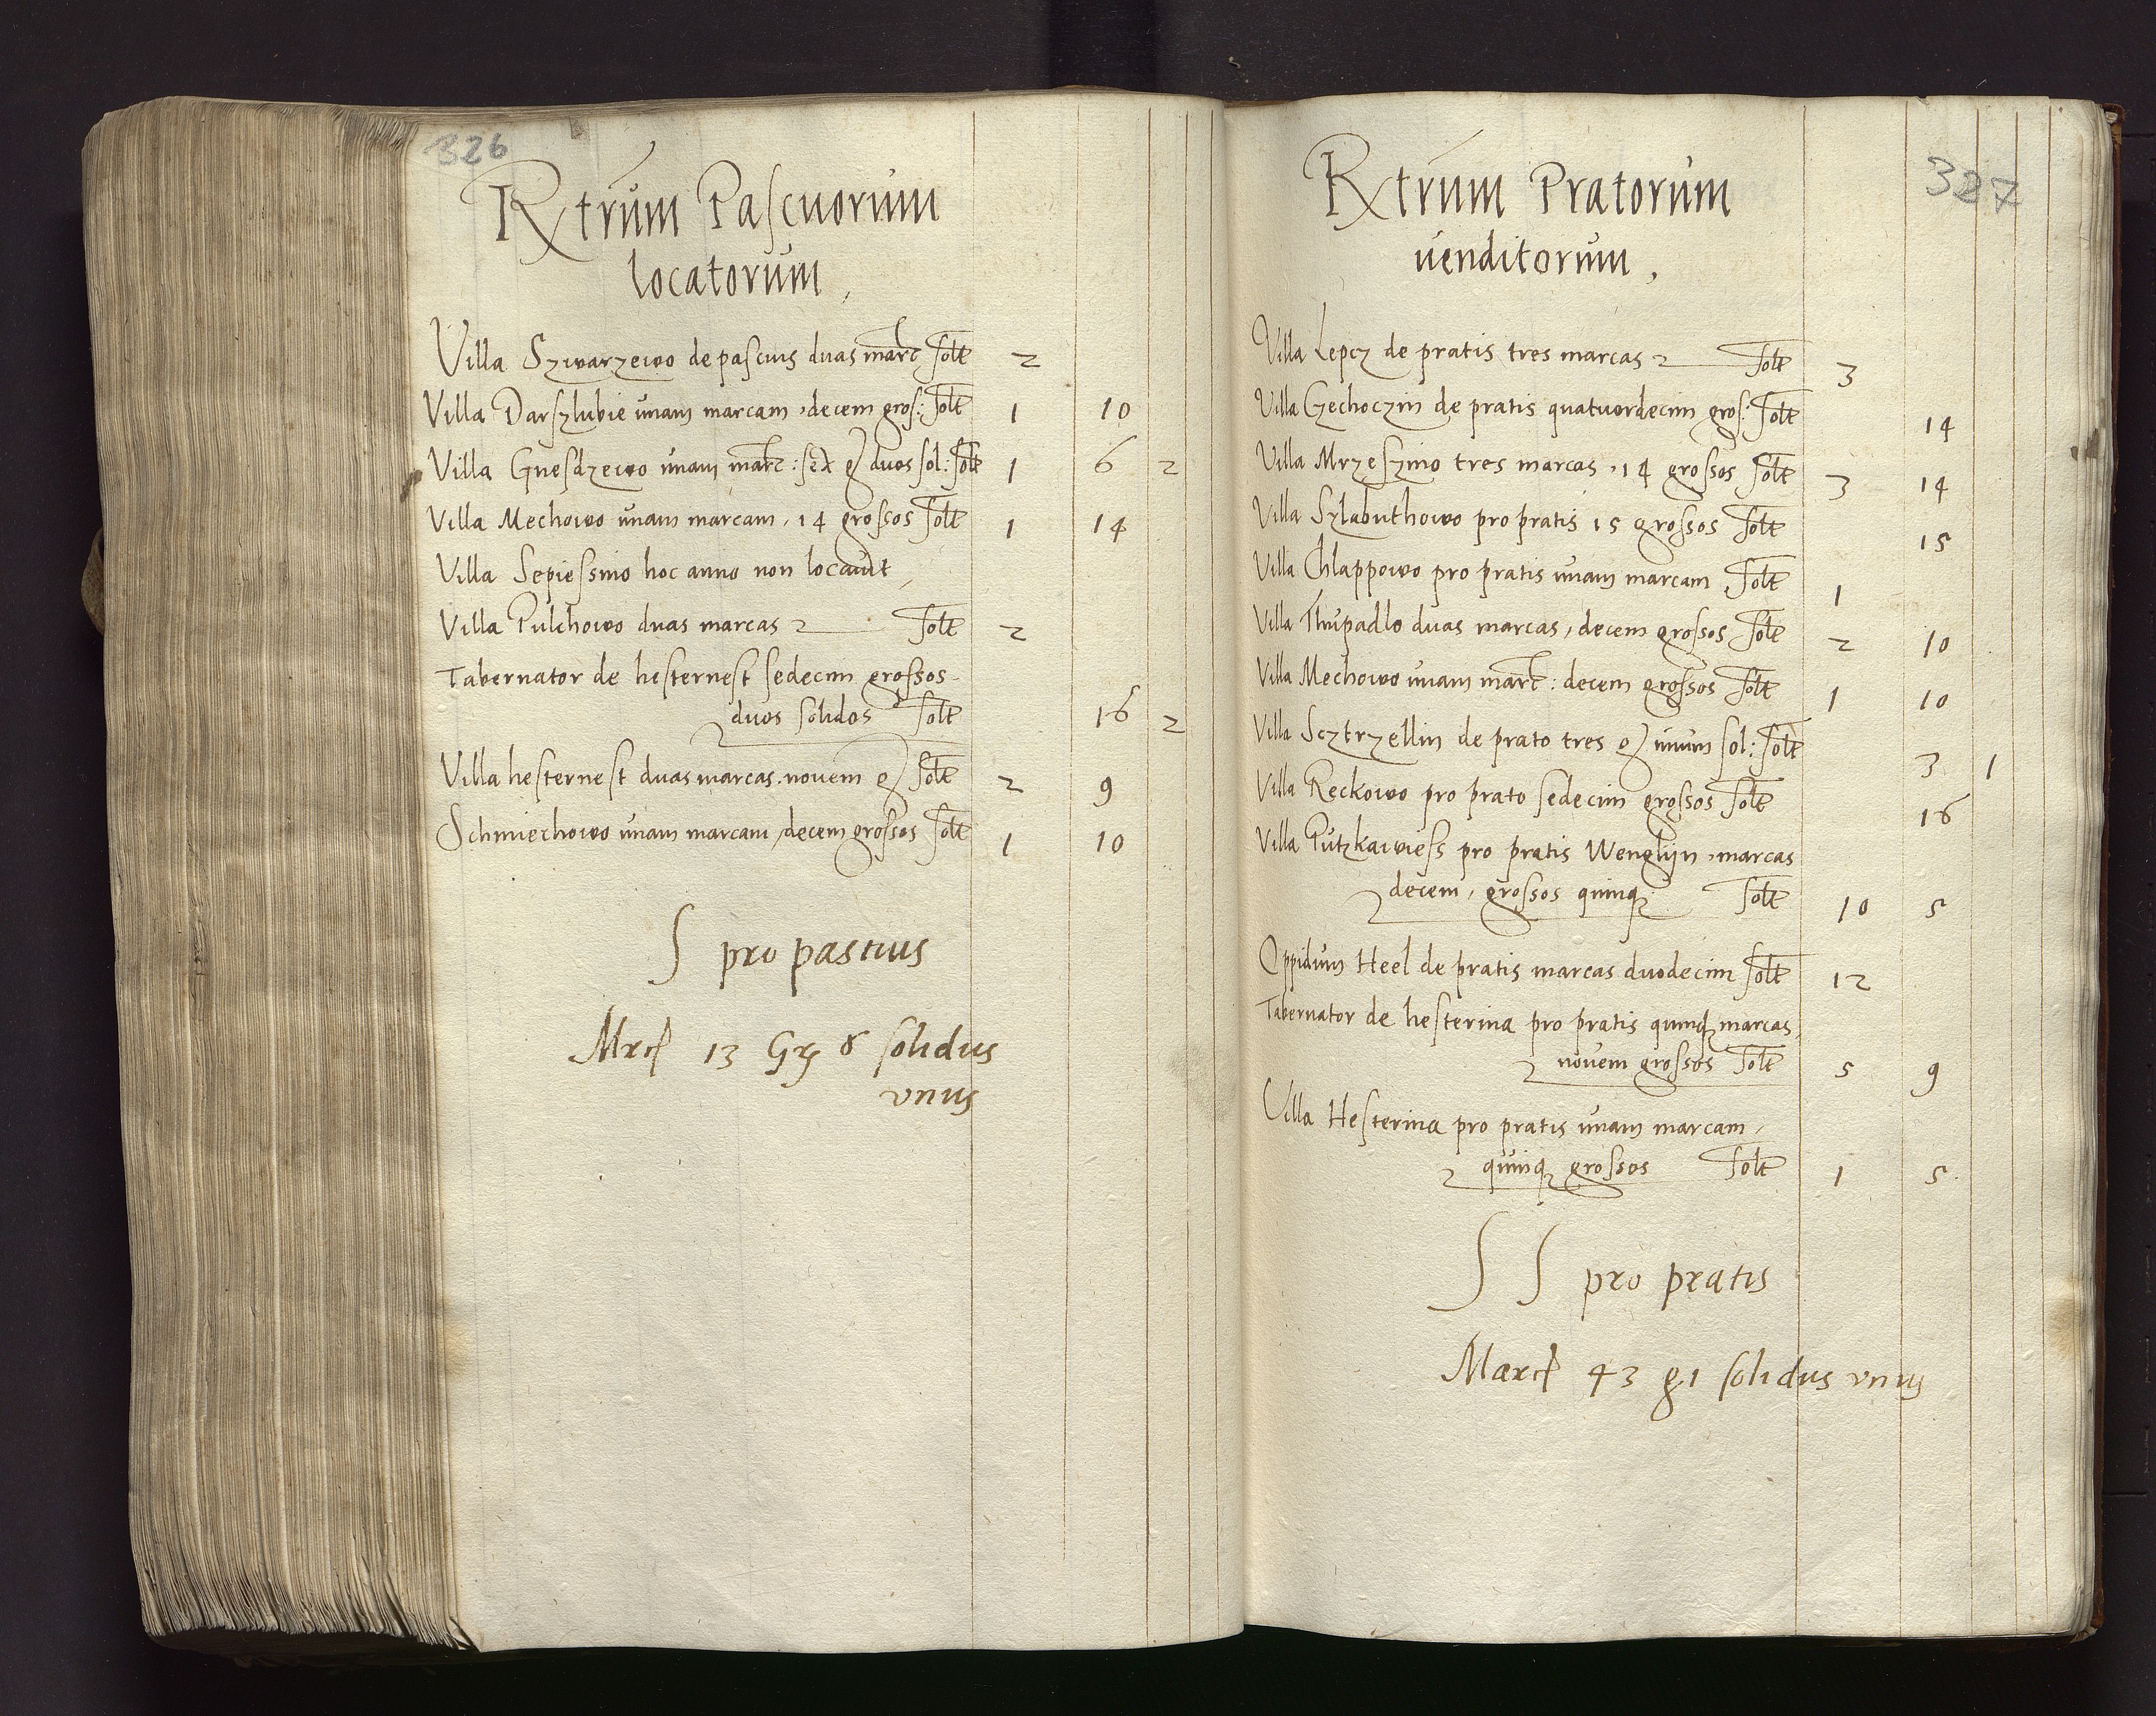 326
Rxtrum Pascuorum
locatorum,
Villa Szwarzewo de pascuis duas marc solt 2
Villa Darszlubie unam marcam, decem gros: solt 1 10
Villa Gnesdzewo unam marc: sex g duos sol: solt 1 6 2
Villa Mechowo unam marcam, 14 grossos solt 1 14
Villa Sepiessino hoc anno non locavit,
Villa Pulchowo duas marcas solt 2
Tabernator de hesternest sedecim grossos
duos solidos solt 16 2
Villa hesternest duas marcas. novem g solt 2 9
Schmiechowo unam marcam, decem grossos solt 1 10
S pro pascuis
Mrc 13 Gr 8 solidus
vnus
327
Rxtrum Pratorum
venditorum,
Villa Lepcz de pratis tres marcas solt 3
Villa Czechoczin de pratis quatuordecim gros: solt 14
Villa Mrzeszino tres marcas, 14 grossos solt 3 14
Villa Szlabuthowo pro pratis 15 grossos solt 15
Villa Chlappowo pro pratis unam marcam solt 1
Villa Thupadlo duas marcas, decem grossos solt 2 10
Villa Mechowo unam marc: decem grossos solt 1 10
Villa Scztrzellin de prato tres g unum sol: solt 3 1
Villa Reckowo pro prato sedecim grossos solt 16
Villa Putzkawiess pro pratis Wenglijn, marcas
decem, grossos quinq solt 10 5
Oppidum Heel de pratis marcas duodecim solt 12
Tabernator de hesterina pro pratis quinq marcas,
novem grossos solt 5 9
Villa Hesterina pro pratis unam marcam,
quinq grossos solt 1 5
S S pro pratis
Marc 43 g 1 solidus vnus